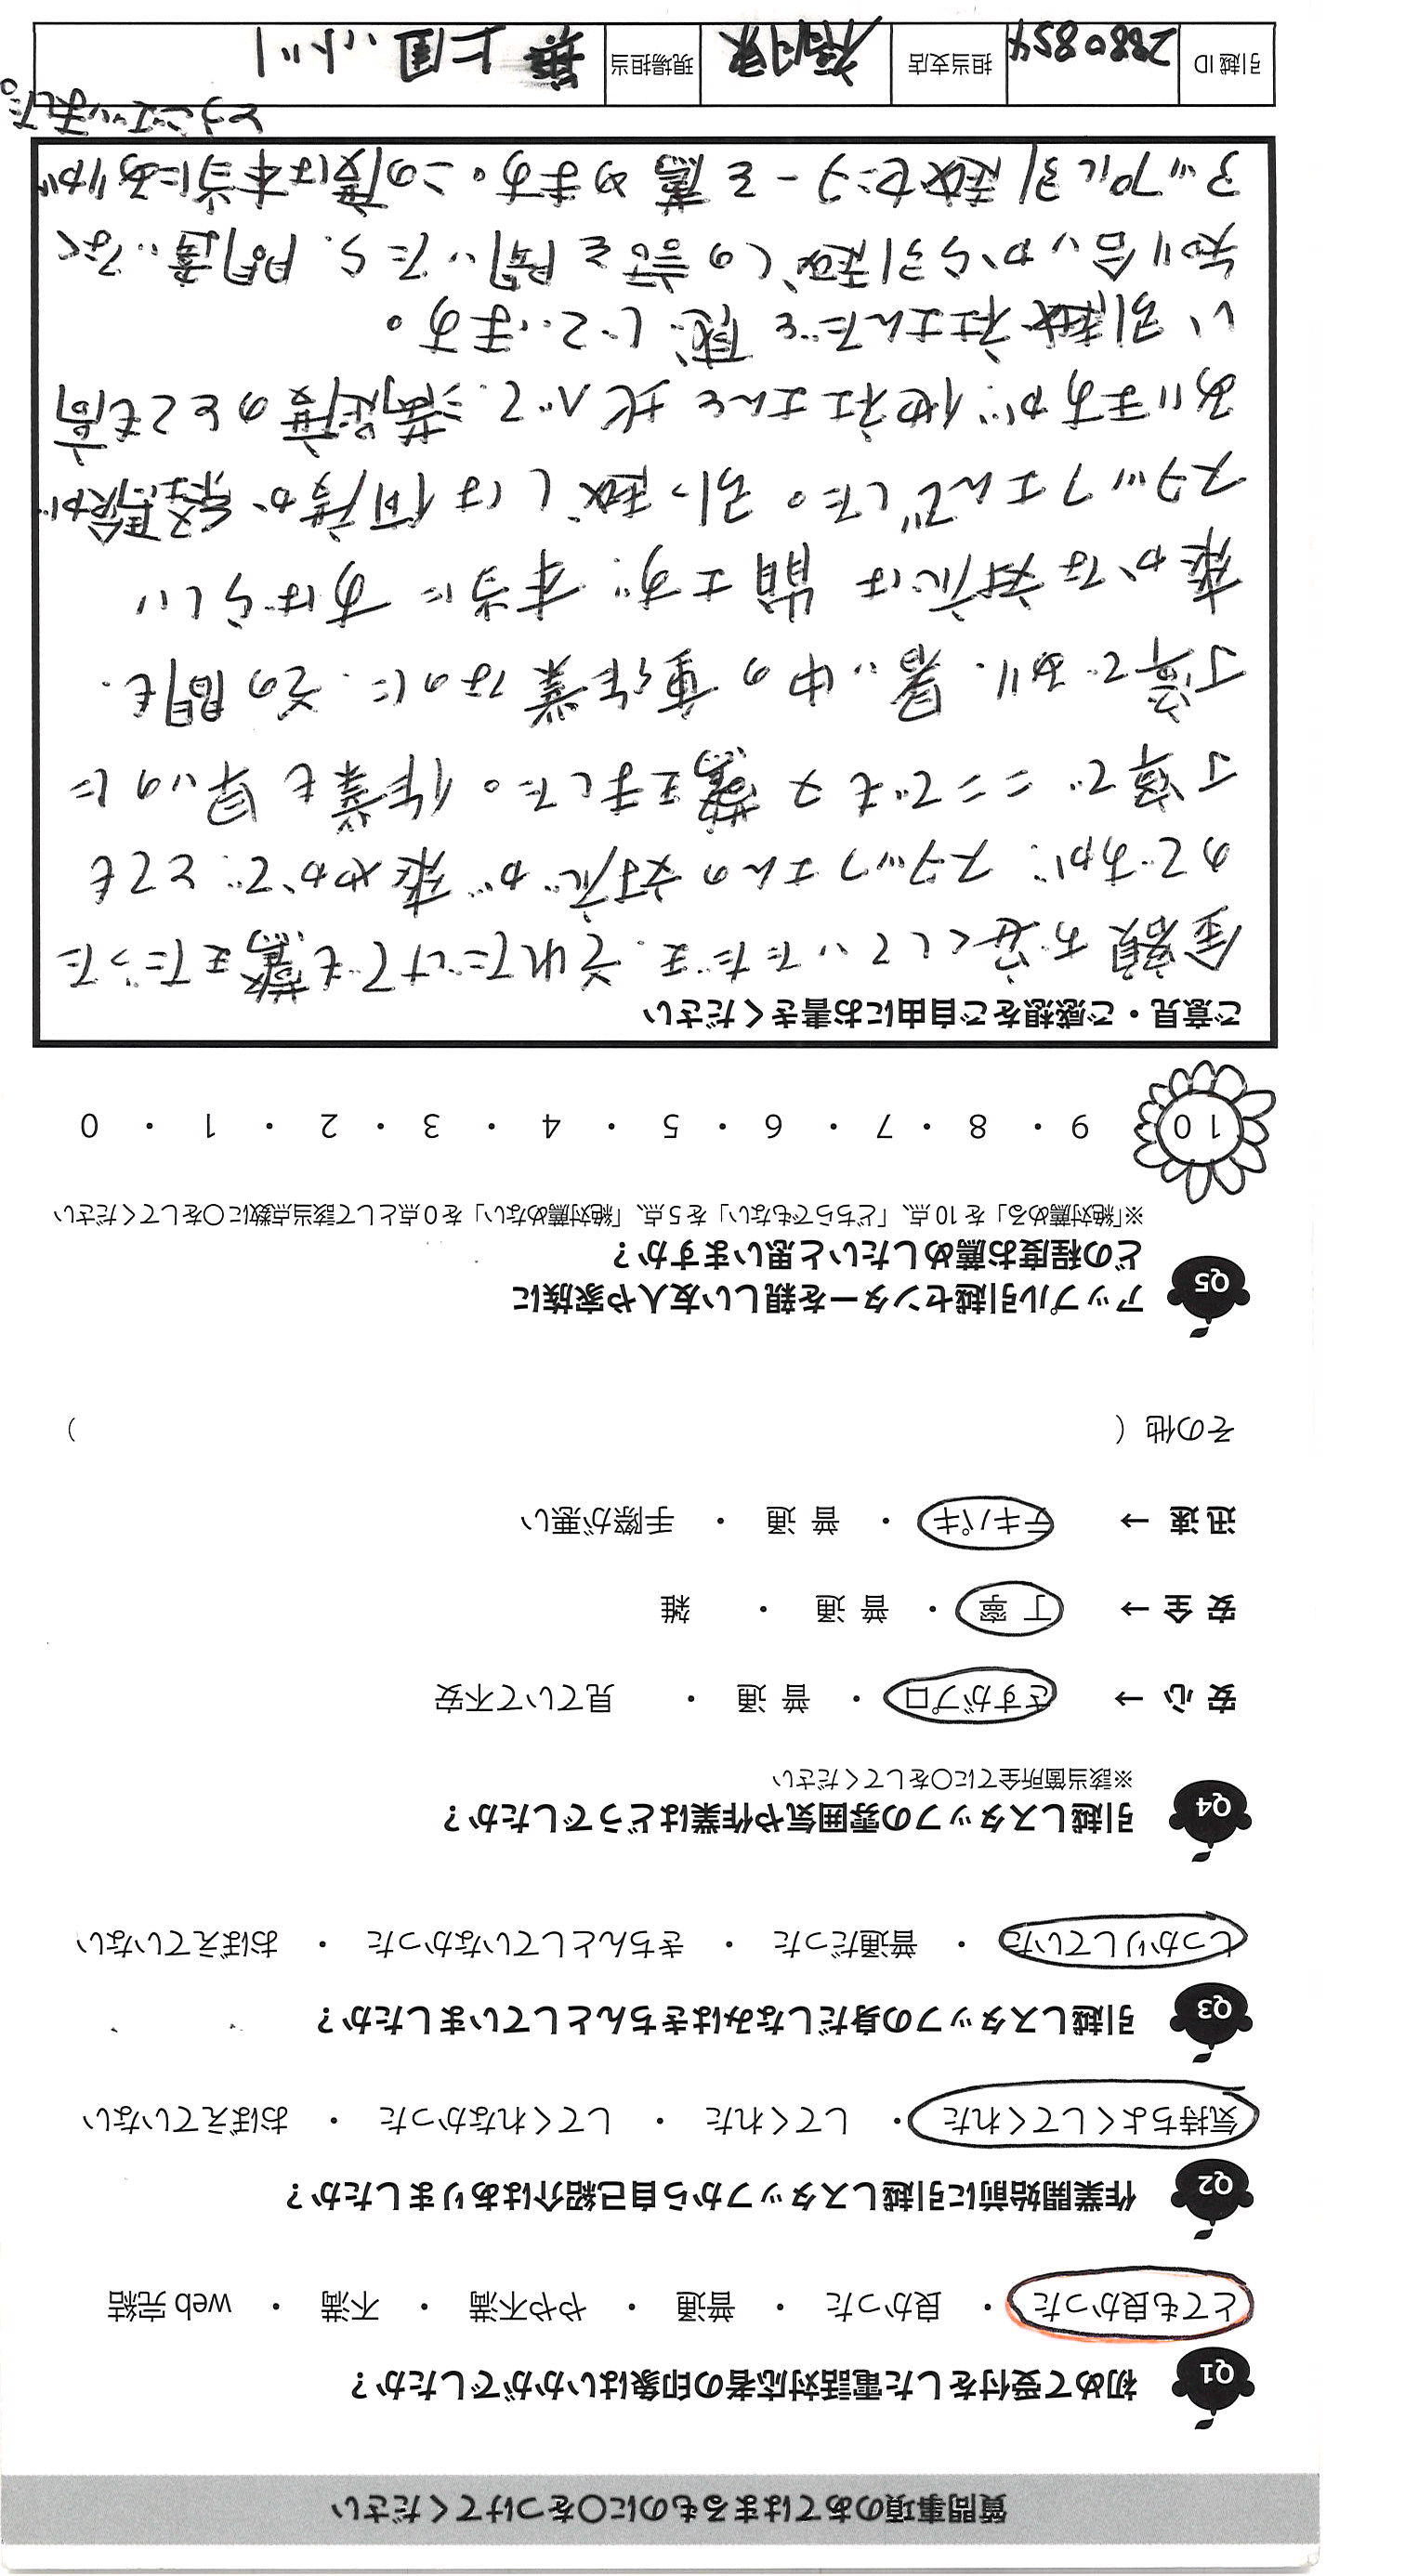 質問事項のあてはまるものに〇をつけてください
Q1 初めて受付をした電話対応者の印象はいかがでしたか？
とても良かった ・ 良かった ・ 普通 ・ やや不満 ・ 不満 ・ web完結
Q2 作業開始前に引越しスタッフから自己紹介はありましたか？
気持ちよくしてくれた ・ してくれた ・ してくれなかった ・ おぼえていない
Q3 引越しスタッフの身だしなみはきちんとしていましたか？
しっかりしていた ・ 普通だった ・ きちんとしていなかった ・ おぼえていない
Q4 引越しスタッフの雰囲気や作業はどうでしたか？
※該当箇所全てに〇をしてください
安心 → さすがプロ ・ 普通 ・ 見ていて不安
安全 → 丁寧 ・ 普通 ・ 雑
迅速 → テキパキ ・ 普通 ・ 手際が悪い
その他（ ）
Q5 アップル引越センターを親しい友人や家族に
どの程度お薦めしたいと思いますか？
※「絶対薦める」を10点、「どちらでもない」を5点、「絶対薦めない」を0点として該当点数に〇をしてください
10 ・ 9 ・ 8 ・ 7 ・ 6 ・ 5 ・ 4 ・ 3 ・ 2 ・ 1 ・ 0
ご意見・ご感想をご自由にお書きください
金額お安くしていただき、それだけでも驚きだった
のですが、スタッフさんの対応が柔やかで、とても
丁寧で ここでも又驚きました。作業も早いのに
丁寧であり、暑い中の重作業なのに、その間も、
柔かな対応は皆さず、本当にすばらしい
スタッフさんでした。引っ越しは何度か経験が
ありますが、他社さんと比べて、満足度のとても高
い引越社さんだと感じています。
知り合いから引越しの話を聞いたら、間違いなく
アップル引越センターを薦めます。この度は本当にありが
とうございました。
引越ID 2880854 担当支店 現場担当 上園 小川